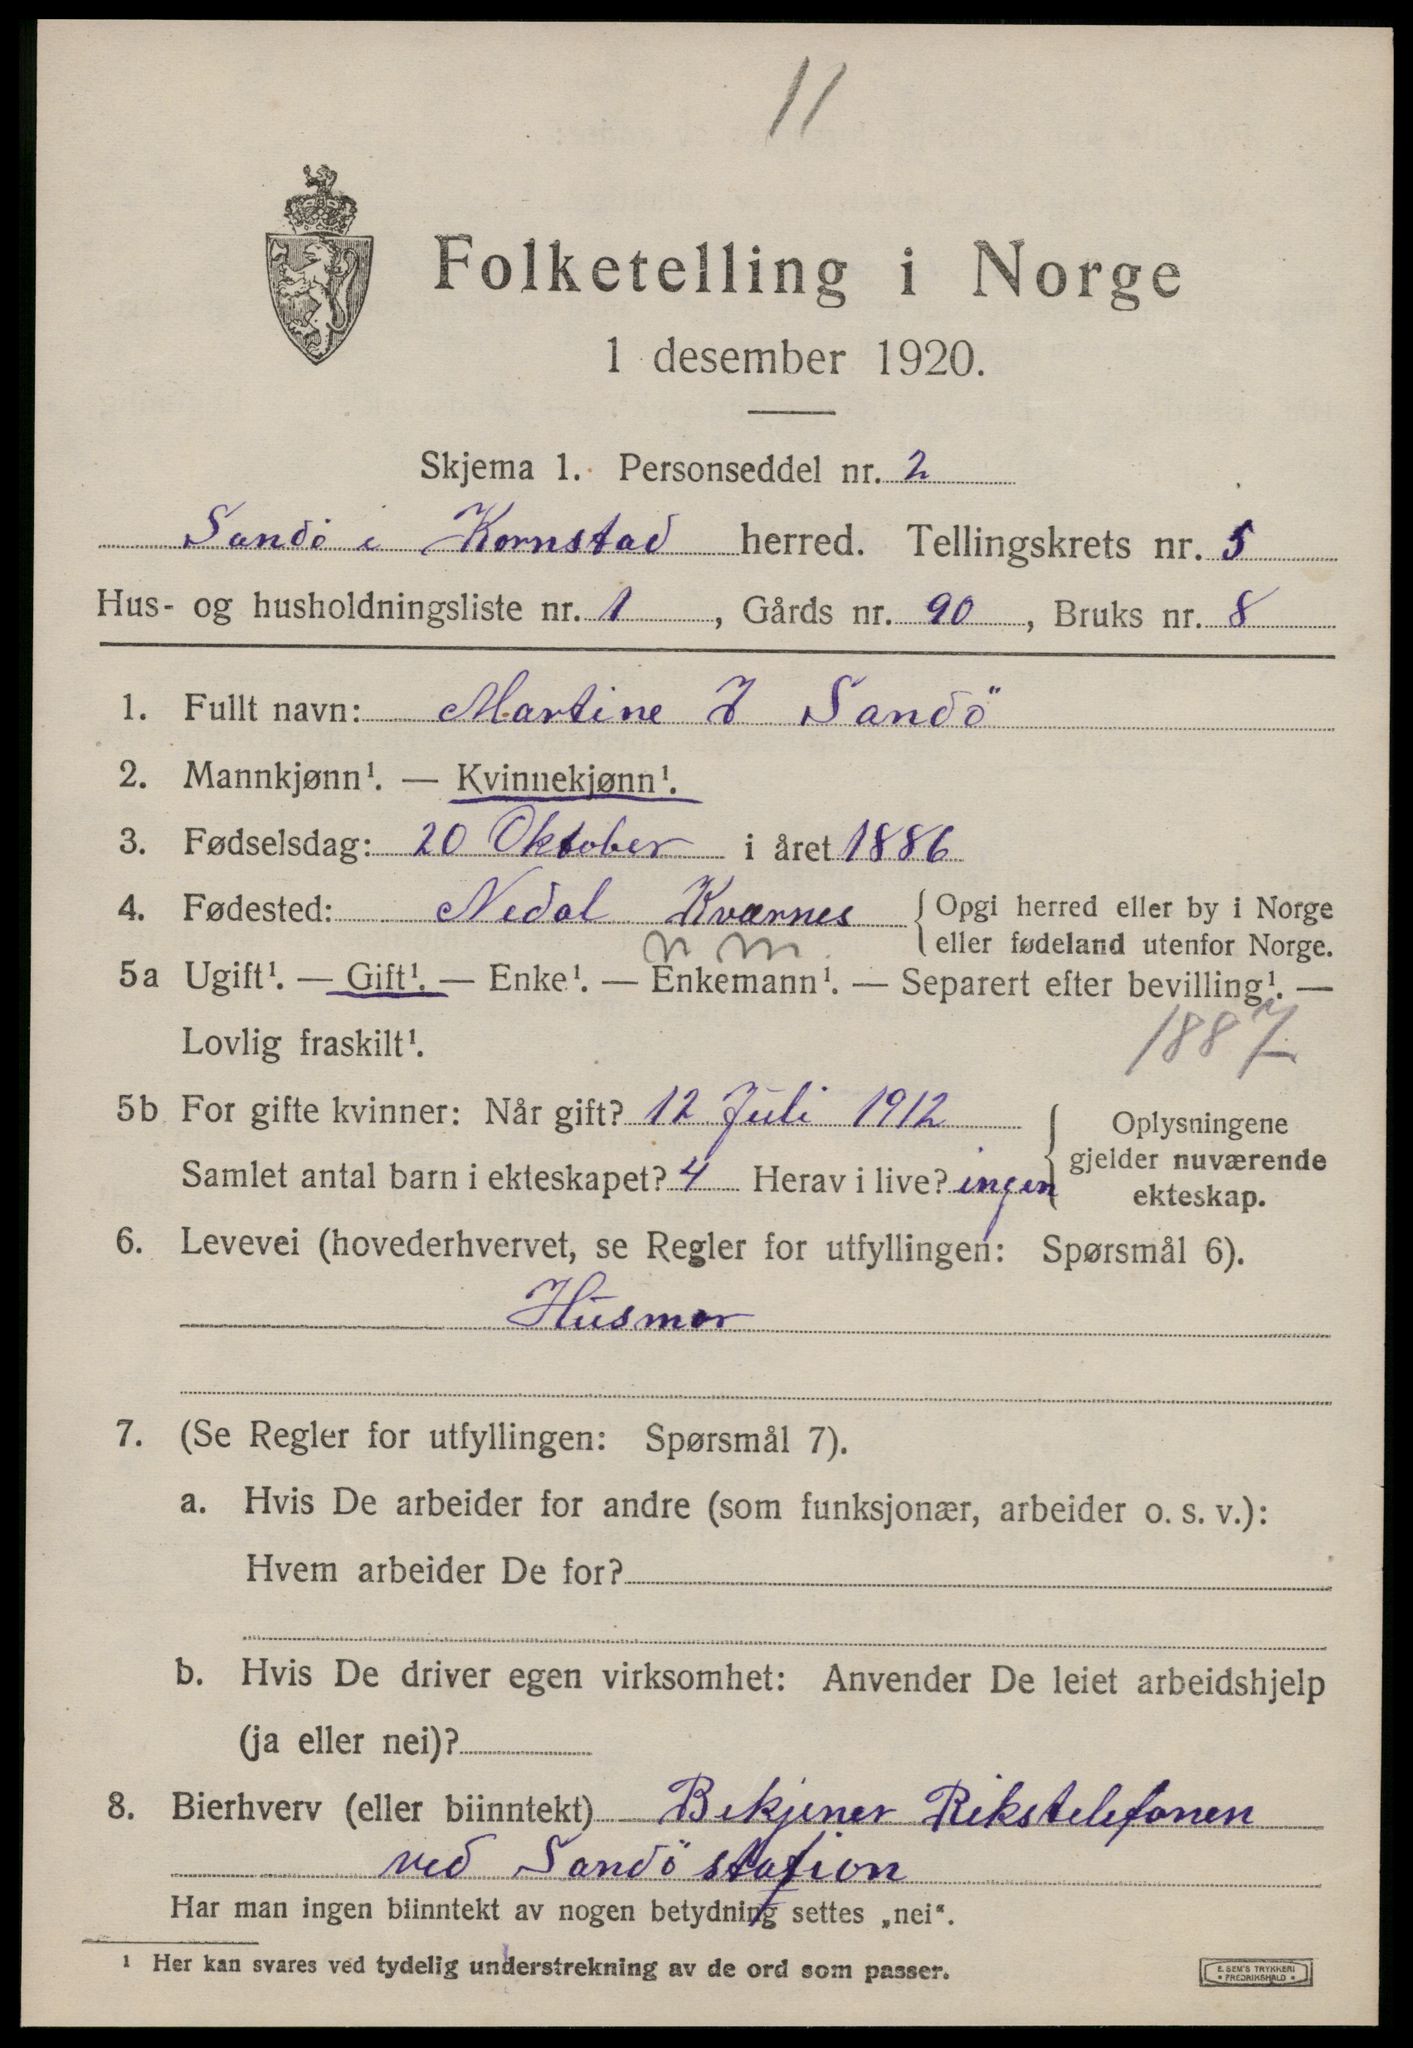 11
Folketelling i Norge
1 desember 1920.
Skjema 1. Personseddel nr. 2
Sandö i Kornstad herred. Tellingskrets nr. 5
Hus- og husholdningsliste nr. 1, Gårds nr. 90, Bruks nr. 8
1. Fullt navn: Martine J Sandö
2. Mannkjønn¹. — Kvinnekjønn¹.
3. Fødselsdag: 20 Oktober i året 1886
4. Fødested: Nedal Kværnes { Opgi herred eller by i Norge
eller fødeland utenfor Norge.
n m.
5a Ugift¹. — Gift¹. — Enke¹. — Enkemann¹. — Separert efter bevilling¹. —
Lovlig fraskilt¹.
1887
5b For gifte kvinner: Når gift? 12 Juli 1912
Samlet antal barn i ekteskapet? 4 Herav i live? ingen
{ Oplysningene
gjelder nuværende
ekteskap.
6. Levevei (hovederhvervet, se Regler for utfyllingen: Spørsmål 6).
Husmor
7. (Se Regler for utfyllingen: Spørsmål 7).
a. Hvis De arbeider for andre (som funksjonær, arbeider o. s. v.):
Hvem arbeider De for?
b. Hvis De driver egen virksomhet: Anvender De leiet arbeidshjelp
(ja eller nei)?
8. Bierhverv (eller biinntekt) Bekjener Rikstelefonen
ved Sandö station
Har man ingen biinntekt av nogen betydning settes „nei“.
¹ Her kan svares ved tydelig understrekning av de ord som passer.
E. SEM'S TRYKKERI
• FREDRIKSHALD •